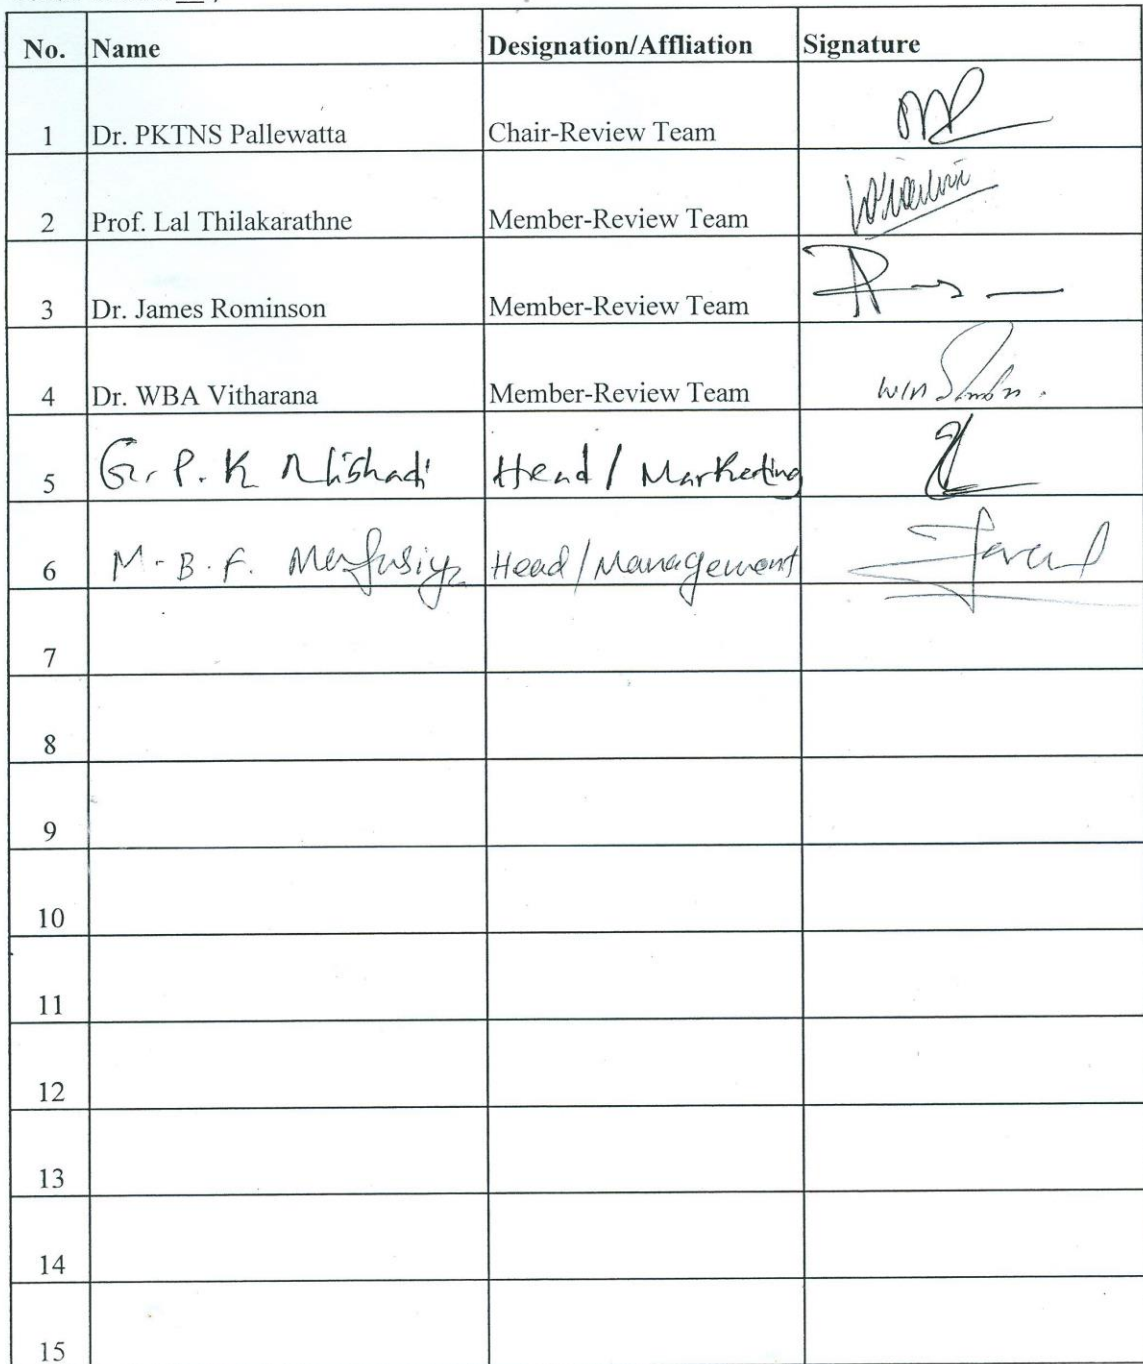 No. Name Designation/Affliation Signature
1 Dr. PKTNS Pallewatta Chair-Review Team
2 Prof. Lal Thilakarathne Member-Review Team
3 Dr. James Rominson Member-Review Team
4 Dr. WBA Vitharana Member-Review Team
5 G. P. K Nishadi Head / Marketing
6 M. B. F. Head/Management
7
8
9
10
11
12
13
14
15